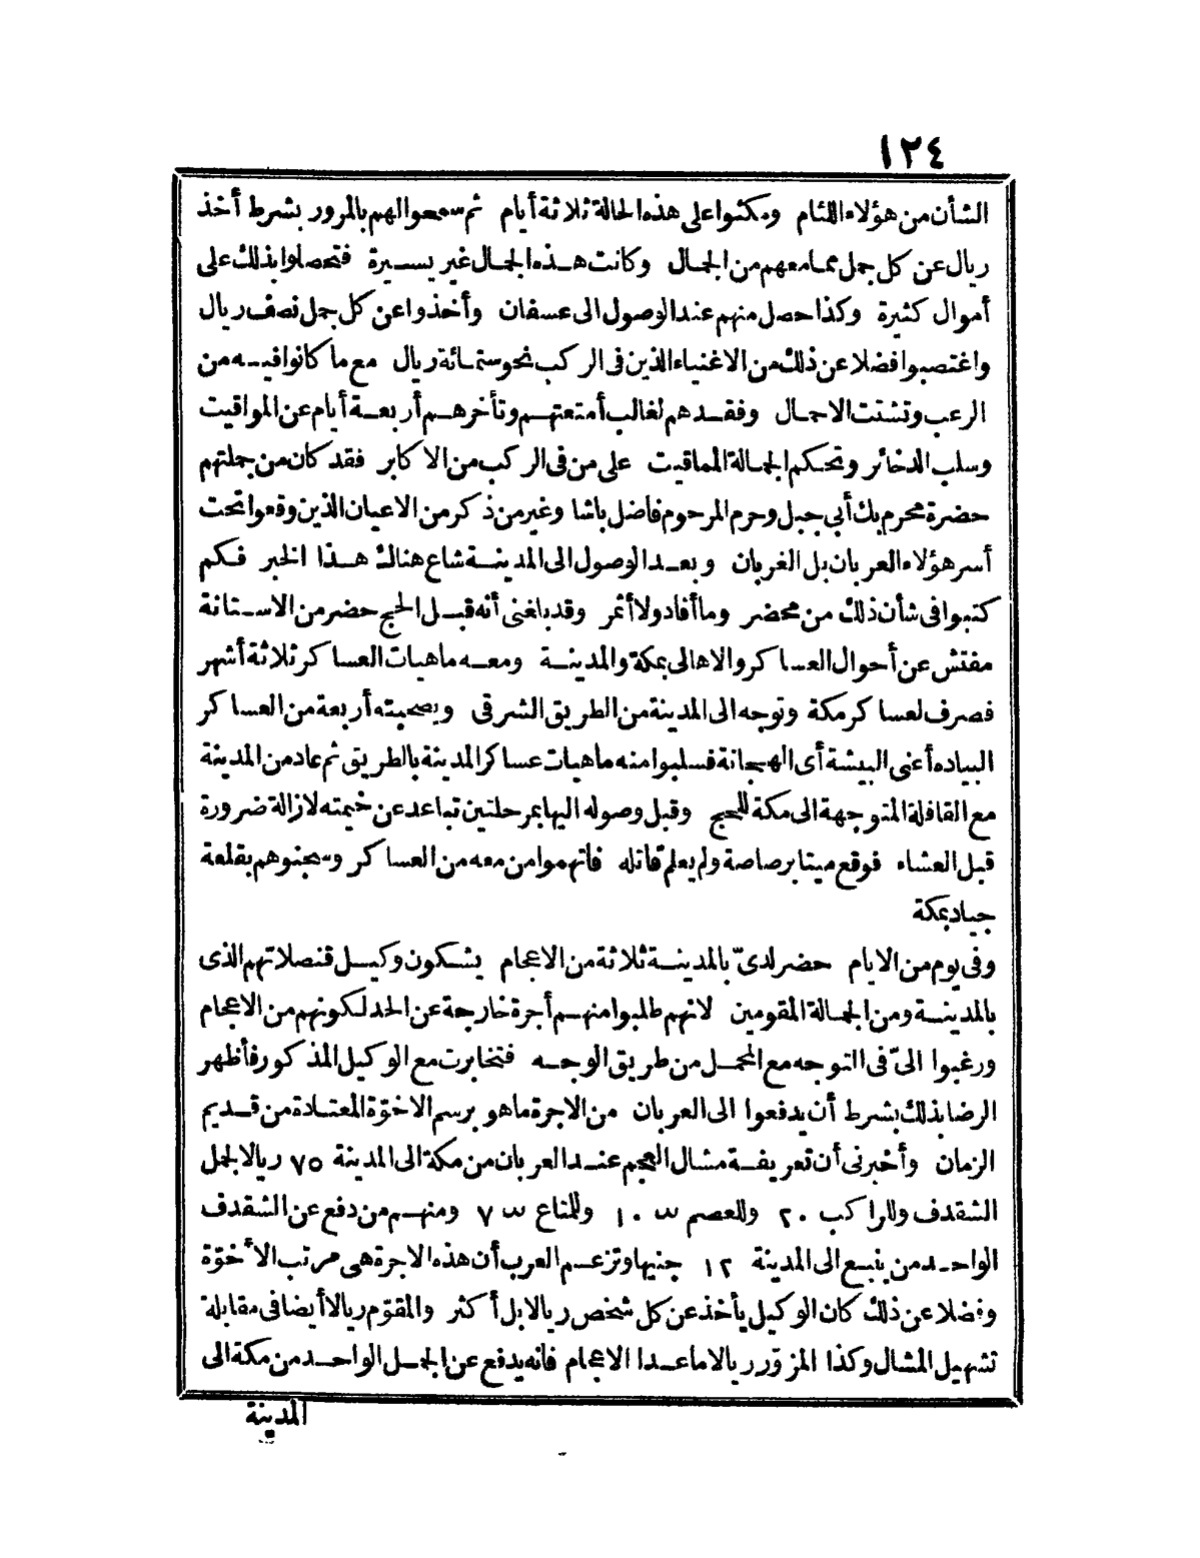 ١٢٤
الشأن من هؤلاء اللئام ومكثوا على هذه الحالة ثلاثة أيام ثم سمعوا لهم بالمرور بشرط أخذ
ريال عن كل جمل مما معهم من الجمال وكانت هذه الجمال غير يسيرة فتحصلوا بذلك على
أموال كثيرة وكذا حصل منهم عند الوصول الى عسفان وأخذوا عن كل جمل نصف ريال
واغتصبوا فضلا عن ذلك من الاغنياء الذين فى الركب نحو ستمائة ريال مع ما كانوا فيه من
الرعب وتشتت الاحمال وفقدهم لغالب أمتعتهم وتأخرهم أربعة أيام عن المواقيت
وسلب الدخائر وتحكم الجمالة المماقيت على من فى الركب من الاكابر فقد كان من جملتهم
حضرة محرم بك أبي جبل وحرم المرحوم فاضل باشا وغير من ذكر من الاعيان الذين وقعوا تحت
أسر هؤلاء العربان بل الغربان وبعد الوصول الى المدينة شاع هنالك هذا الخبر فكم
كتبوا فى شأن ذلك من محضر وما أفاد ولا أثمر وقد بلغنى أنه قبل الحج حضر من الاستانة
مفتش عن أحوال العساكر والاهالى بمكة والمدينة ومعه ماهيات العساكر ثلاثة أشهر
فصرف لعساكر مكة وتوجه الى المدينة من الطريق الشرقى وبصحبته أربعة من العساكر
البياده أعنى البيشة أى الهجانة فسلبوا منه ماهيات عساكر المدينة بالطريق ثم عاد من المدينة
مع القافلة المتوجهة الى مكة للحج وقبل وصوله اليها بمرحلتين تباعد عن خيمته لازالة ضرورة
قبل العشاء فوقع ميتا برصاصة ولم يعلم قاتله فاتهموا من معه من العساكر وسجنوهم بقلعة
جياد بمكة
وفى يوم من الايام حضر لدىّ بالمدينة ثلاثة من الاعجام يشكون وكيل قنصلاتهم الذى
بالمدينة ومن الجمالة المقومين لانهم طلبوا منهم أجرة خارجة عن الحد لكونهم من الاعجام
ورغبوا الىّ فى التوجه مع المحمل من طريق الوجه فتخابرت مع الوكيل المذكور فأظهر
الرضا بذلك بشرط أن يدفعوا الى العربان من الاجرة ما هو برسم الاخوّة المعتادة من قديم
الزمان وأخبرنى أن تعريفة مشال العجم عند العربان من مكة الى المدينة ٧٥ ريالا لجمل
الشقدف وللراكب ٢٠ وللعصم س ١٠ وللمتاع س ٧ ومنهم من دفع عن الشقدف
الواحد من ينبع الى المدينة ١٢ جنيها وتزعم العرب أن هذه الاجرة هى مرتب الأخوّة
وفضلا عن ذلك كان الوكيل يأخذ عن كل شخص ريالا بل أكثر والمقوّم ريالا أيضا فى مقابلة
تشهيل المشال وكذا المزوّر ريالا ماعدا الاعجام فانه يدفع عن الجمل الواحد من مكة الى
المدينة